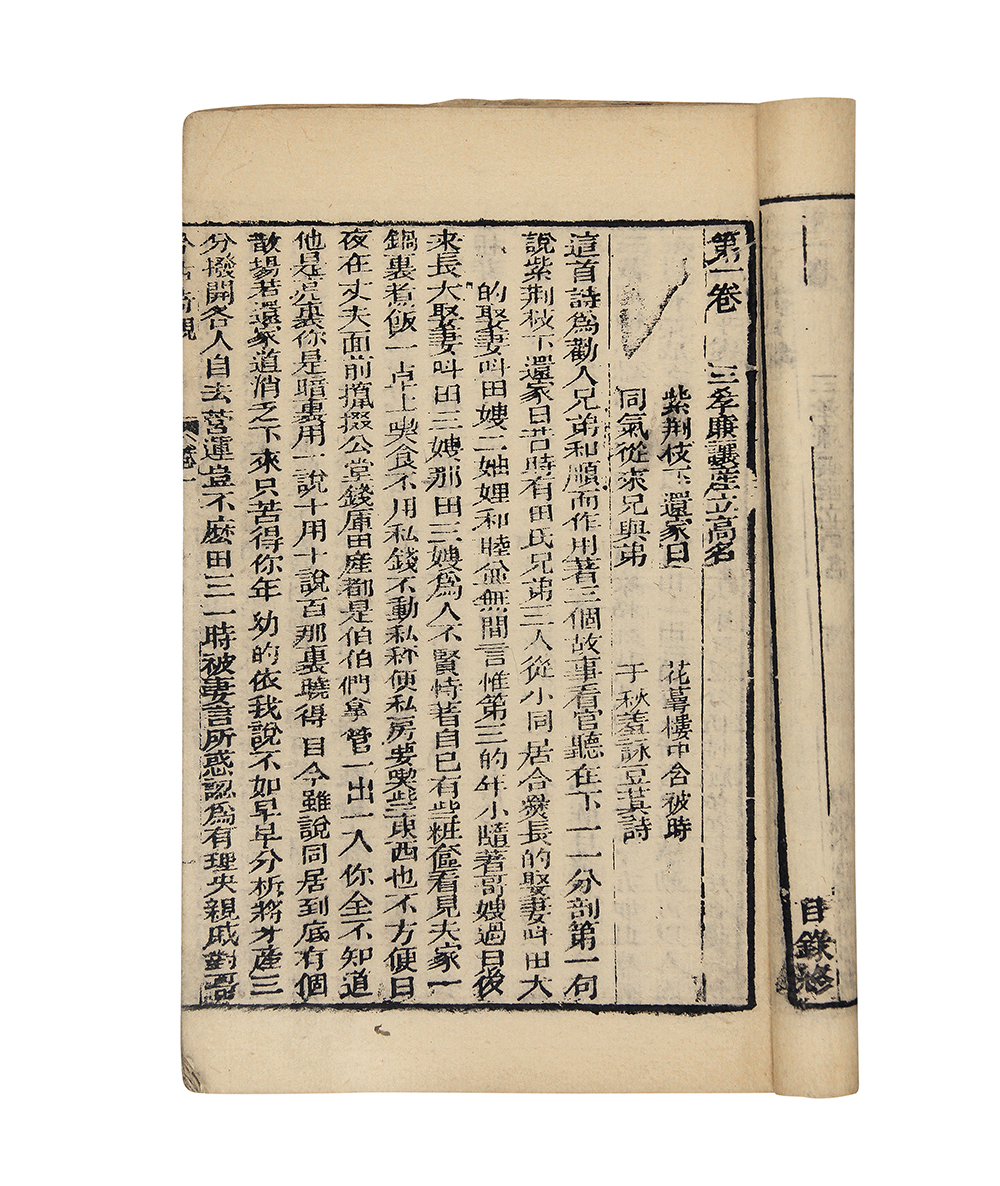 目錄終
第一卷　三孝廉讓產立高名
紫荊枝下還家日　花萼樓中合被時
同氣從來兄與弟　千秋羞詠豆萁詩
這首詩爲勸人兄弟和順而作用著三個故事看官聽在下一一分剖第一句
說紫荊枝下還家日昔時有田氏兄弟三人從小同居合爨長的娶妻叫田大
的娶妻叫田嫂二妯娌和睦並無間言惟第三的年小隨著哥嫂過日後
來長大娶妻叫田三嫂那田三嫂爲人不賢恃著自已有些粧奩看見夫家一
鍋裏煮飯一占上喫食不用私錢不動私秤便私房要喫些東西也不方便日
夜在丈夫面前攛掇公堂錢庫田産都是伯伯們掌管一出一入你全不知道
他是亮裏你是暗裏用一說十用十說百那裏曉得目今雖說同居到底有個
散塲若還家道消乏下來只苦得你年幼的依我說不如早早分析將才産三
分撥開各人自去營運豈不麽田三一時被妻言所惑認爲有理央親戚對哥
今古奇觀　卷一